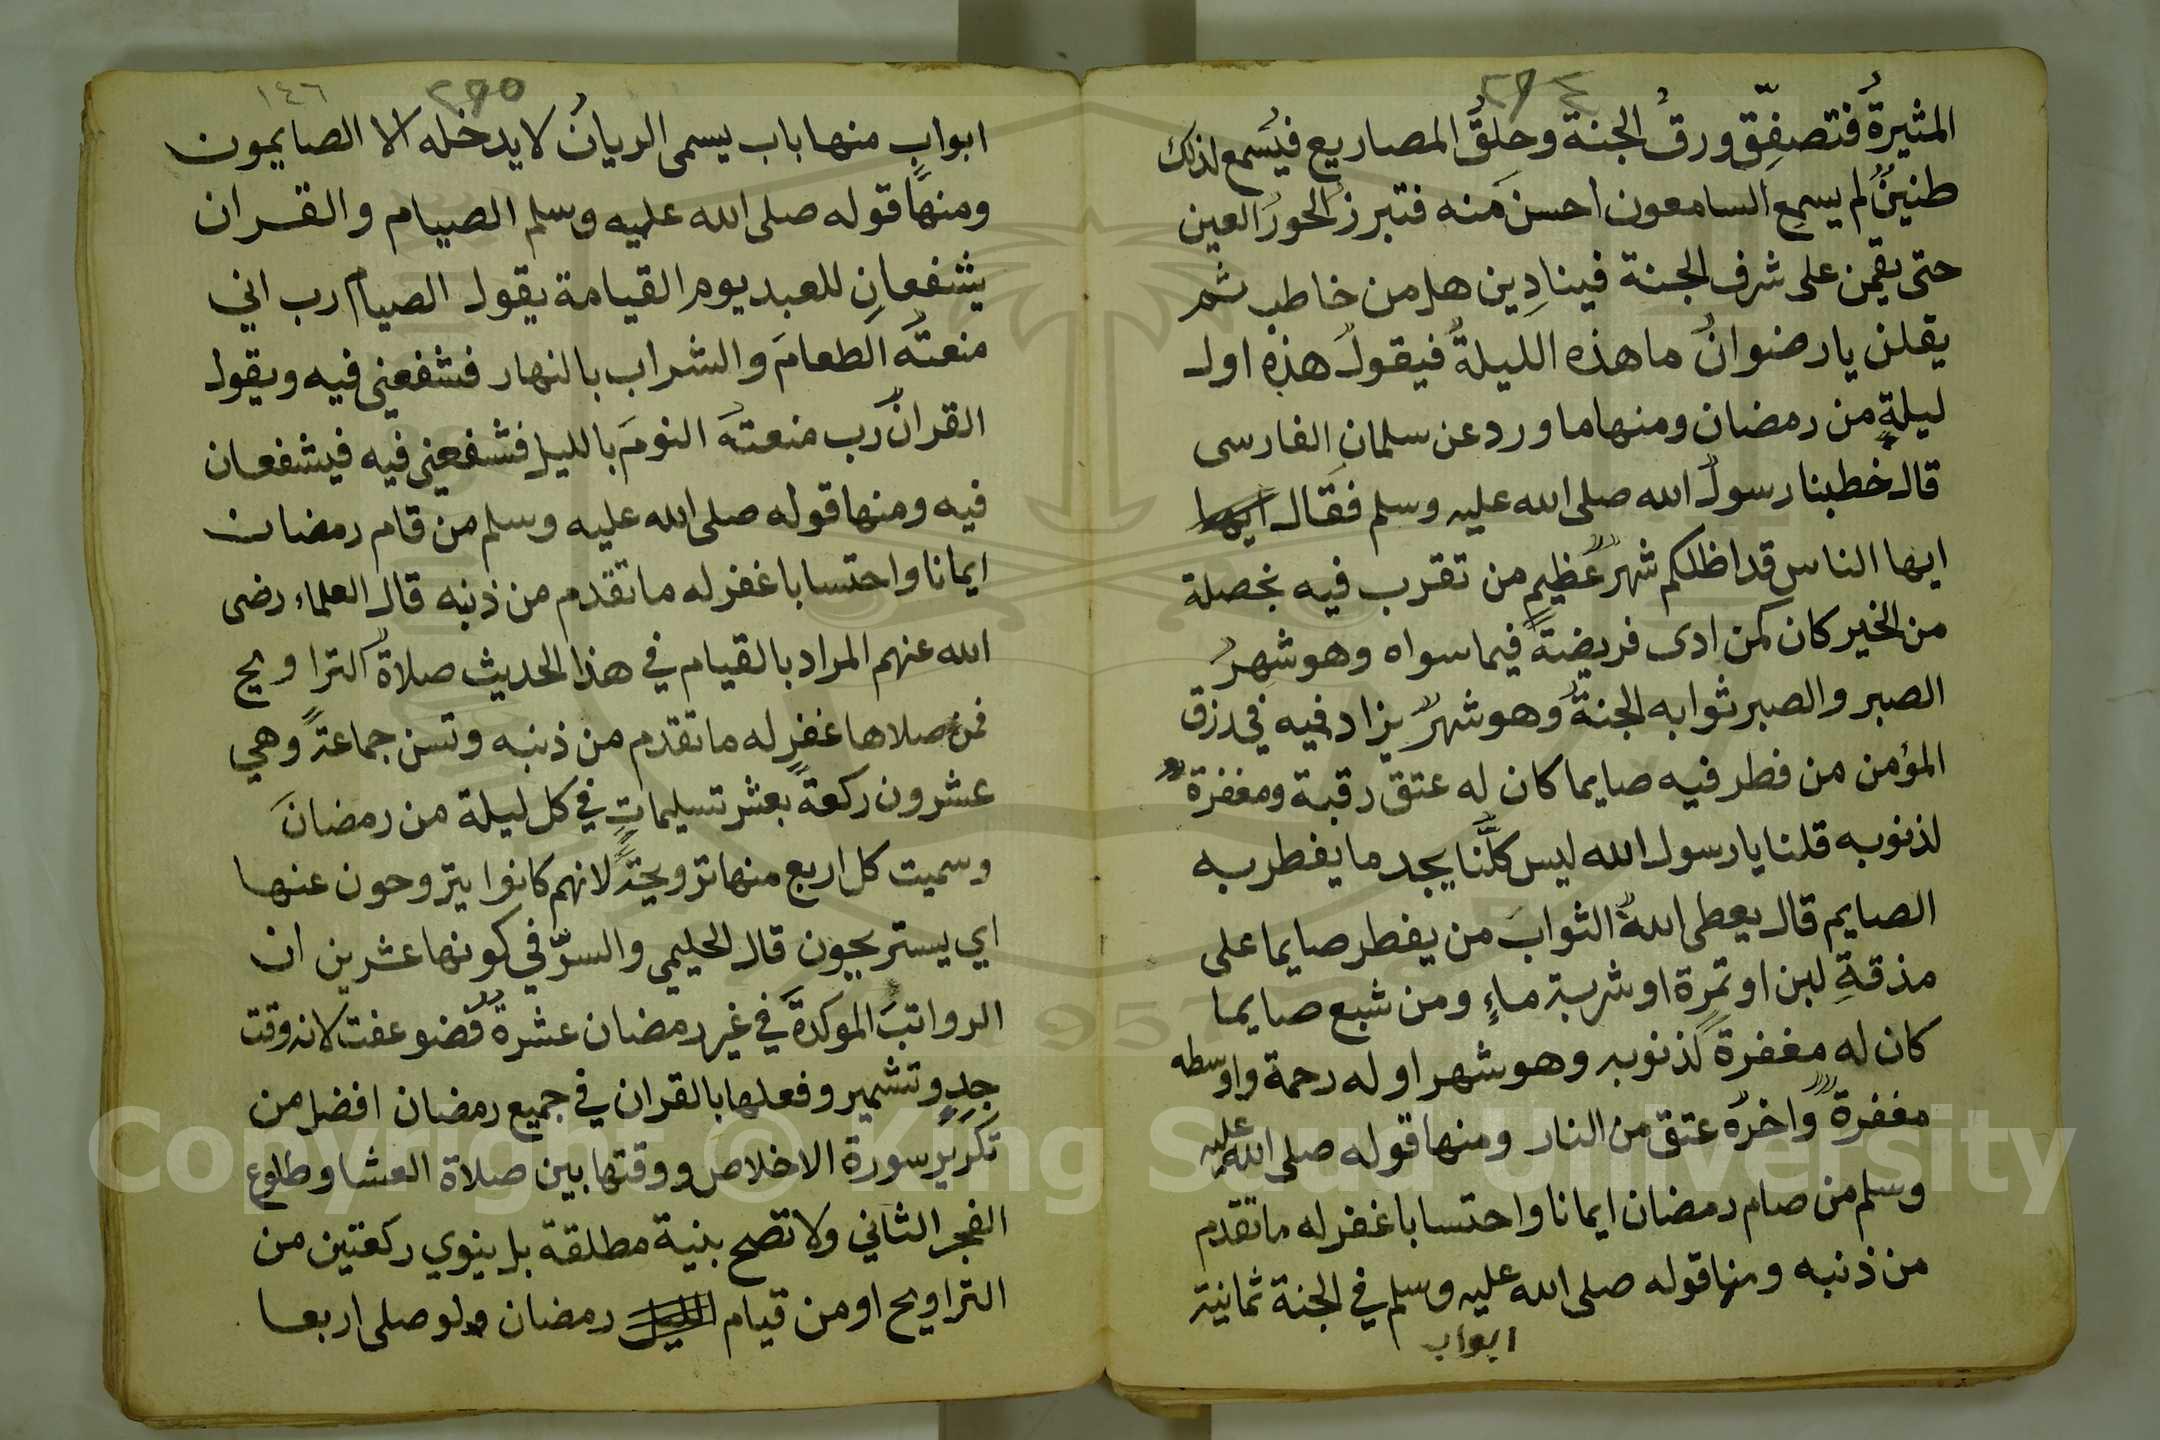 ٢٩٤
المثيرةُ فتصفِّق ورقُ الجنة وحِلَقُ المصاريع فيُسمع لذلك
طنينٌ لم يسمع السامعون احسنَ منه فتبرزُ الحورُ العين
حتى يقمن على شرف الجنة فينادِين هل من خاطب ثم
يقلن يا رضوانُ ما هذه الليلةُ فيقولُ هذِه اول
ليلةٍ من رمضان ومنها ما ورد عن سلمان الفارسى
قال خطبنا رسولُ الله صلى الله عليه وسلم فقال ايها
ايها الناس قد اظلكم شهرٌ عظيمٌ من تقرب فيه بخصلة
من الخير كان كمن ادى فريضةً فيما سواه وهو شهرُ
الصبر والصبر ثوابه الجنةُ وهو شهرٌ يزاد فيه في رزق
المؤمن من فطر فيه صايما كان له عتق رقبة ومغفرةٌ
لذنوبه قلنا يا رسول الله ليس كلُّنا يجد ما يفطر به
الصايم قال يعطى اللهُ الثوابَ من يفطر صايما على
مذقةِ لبن او تمرة او شربة ماءٍ ومن شبع صايما
كان له مغفرةً لذنوبه وهو شهر اوله رحمة واوسطه
مغفرةٌ واخرُه عتق من النار ومنها قوله صلى الله عليه
وسلم من صام رمضان ايمانا واحتسابا غفر له ما تقدم
من ذنبه ومنها قوله صلى الله عليه وسلم في الجنة ثمانية
ابواب
١٤٦ ٢٩٥
ابوابٍ منها باب يسمى الريانُ لا يدخله الا الصايمون
ومنها قوله صلى الله عليه وسلم الصيام والقران
يشفعانِ للعبد يوم القيامة يقول الصيام رب اني
منعتُه الطعامَ والشراب بالنهار فشفعني فيه ويقول
القرانُ رب منعتُه النومَ بالليل فشفعني فيه فيشفعان
فيه ومنها قوله صلى الله عليه وسلم من قام رمضان
ايمانا واحتسابا غفر له ما تقدم من ذنبه قال العلماء رضى
الله عنهم المراد بالقيام في هذا الحديث صلاةُ التراويح
فمن صلاها غفر له ما تقدم من ذنبه وتسن جماعةً وهي
عشرون ركعةً بعشر تسليماتٍ في كل ليلة من رمضانَ
وسميت كل اربع منها ترويحةً لانهم كانوا يتروحون عنها
اي يستريحون قال الحليمي والسرّ في كونها عشرين ان
الرواتبَ الموكدةَ في غير رمضان عشرةٌ فضوعفت لانه وقت
جدٍ وتشمير وفعلها بالقران في جميع رمضان افضل من
تكريرِ سورة الاخلاص ووقتها بين صلاة العشا وطلوع
الفجر الثاني ولا تصح بنية مطلقة بل ينوي ركعتين من
التراويح او من قيام الليل رمضان ولو صلى اربعا
Copyright © King Saud University
1957